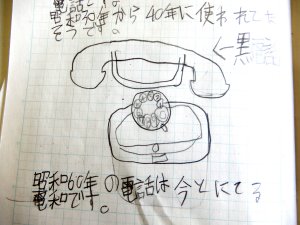 電話です。
昭和30年から40年に使われてた
そうです。
←黒電話
昭和60年の電話は今とにてる
電和です。